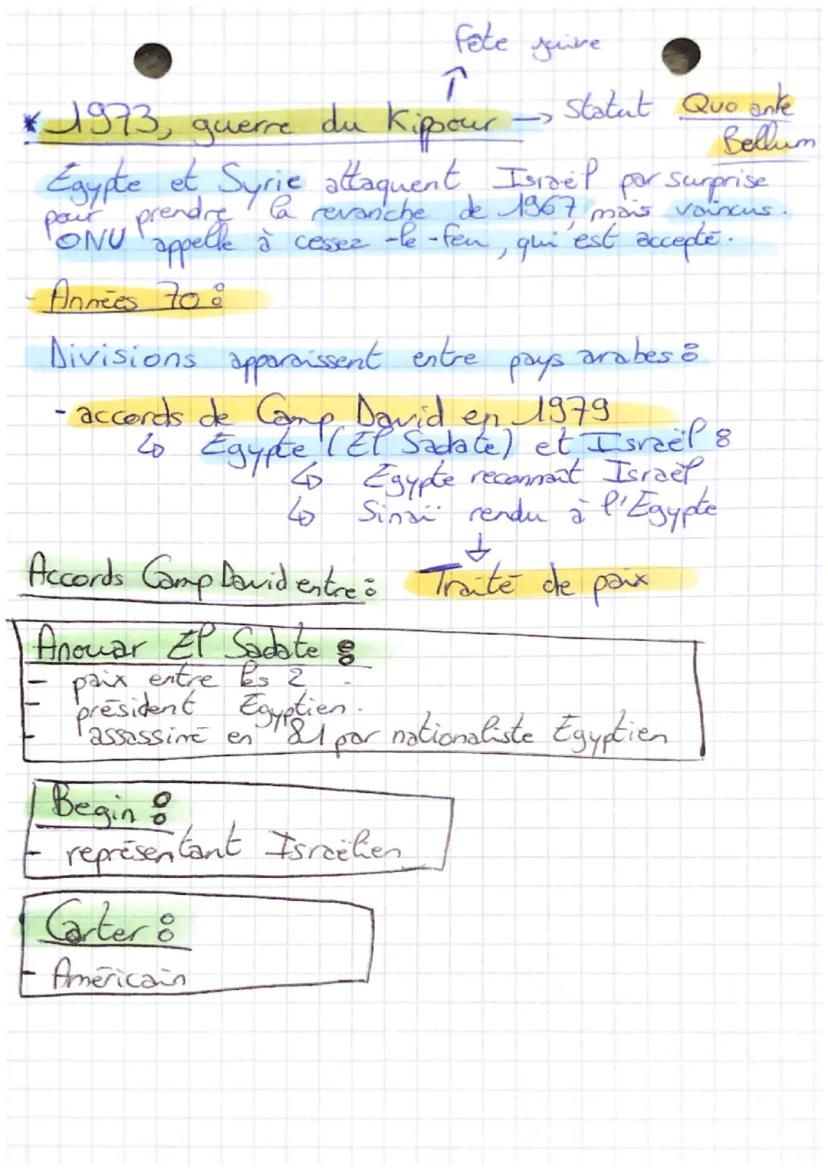 fête juive
↑
* 1973, guerre du Kippour → Statut Quo ante
Bellum
Egypte et Syrie attaquent Israël par surprise
pour prendre la revanche de 1967, mais vaincus.
ONU appelle à cessez-le-feu, qui est accepté.
- Années 70 :
Divisions apparaissent entre pays arabes :
- accords de Camp David en 1979
↳ Egypte (El Sadate) et Israël :
↳ Egypte reconnait Israël
↳ Sinaï rendu à l'Egypte
↓
Accords Camp David entre : Traité de paix
Anouar El Sadate :
- paix entre les 2
- président Egyptien.
- assassiné en 81 par nationaliste Egyptien
Begin :
- représentant Israëlien
Carter :
- Américain